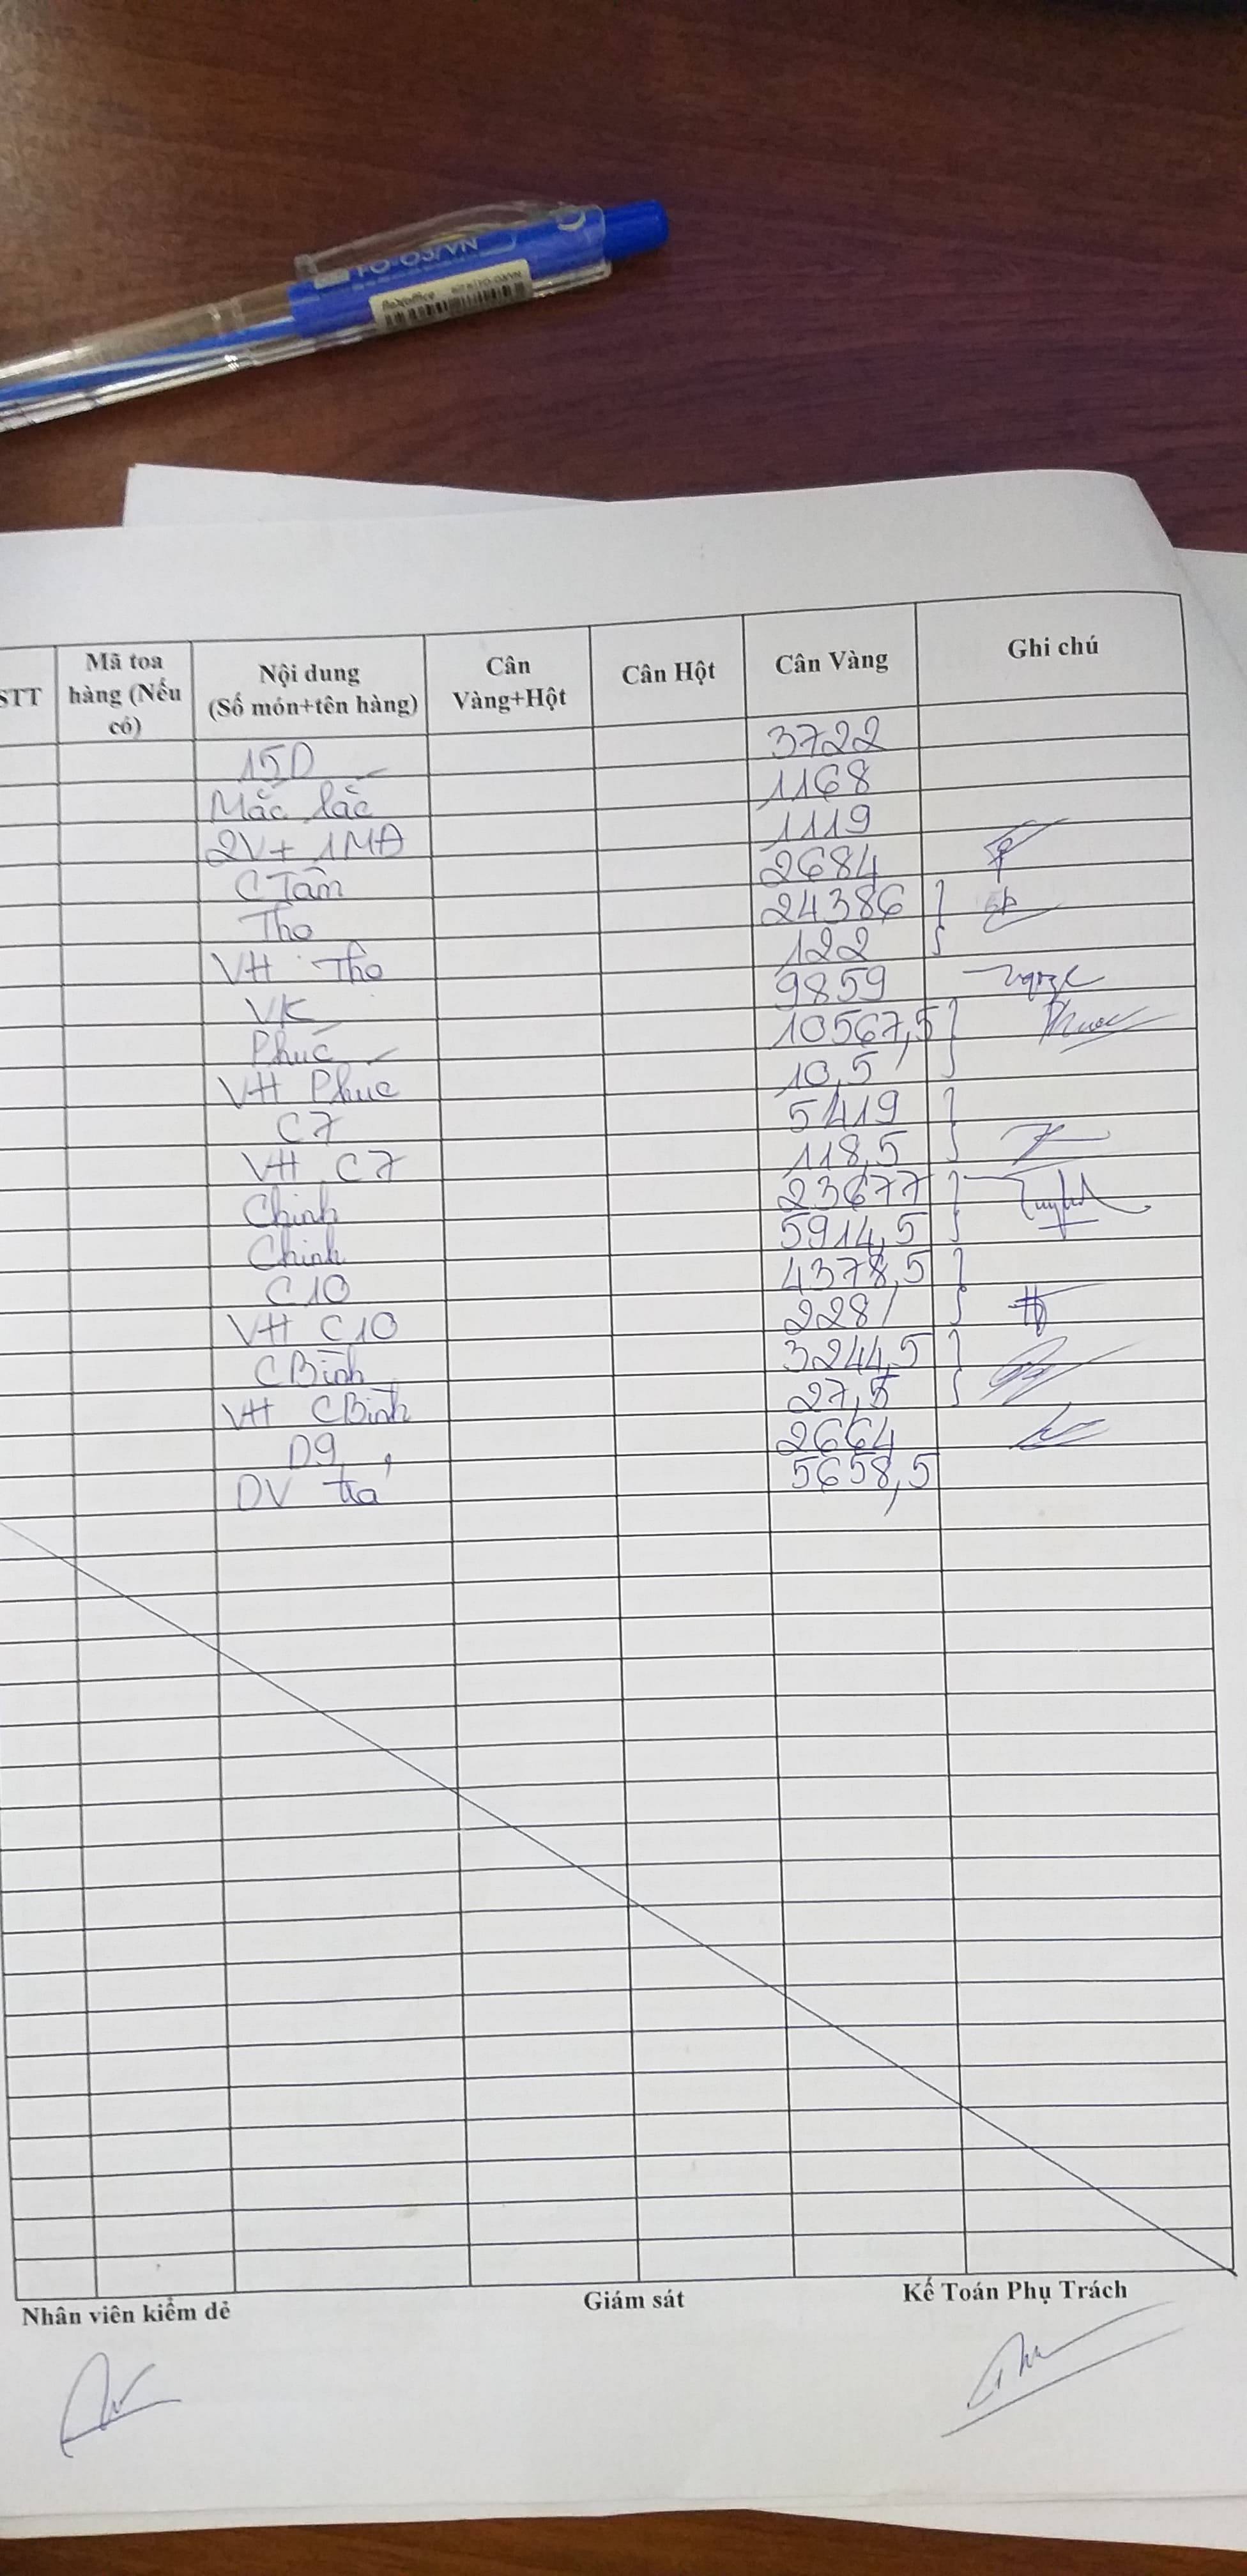 FO-03/VN
flexoffice
STT Mã toa hàng (Nếu có) Nội dung (Số món+tên hàng) Cân Vàng+Hột Cân Hột Cân Vàng Ghi chú
15D 3722
Mắc lắc 1168
2V+ 1MĐ 1119
C Tâm 2684
Thọ 24386
VH Thọ 122
VK 9859
Phúc 10567,5
VH Phúc 10,5
C7 5419
VH C7 118,5
Chinh 23677
Chinh 5914,5
C10 4378,5
VH C10 228
CBình 3244,5
VH CBình 27,5
D9 2664
DV trả 5658,5
Nhân viên kiểm dẻ Giám sát Kế Toán Phụ Trách